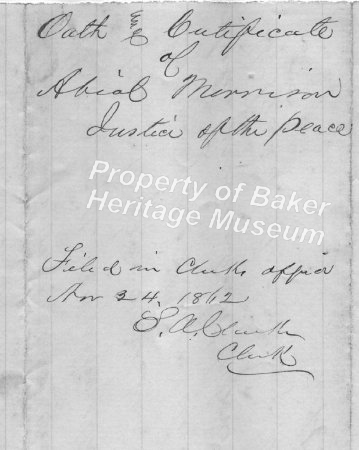 Oath & Certificate
of
Abial Morrison
Justice of the peace
Property of Baker
Heritage Museum
Filed in Clerks office
Nov 24, 1862
S. A. Clarke
Clerk